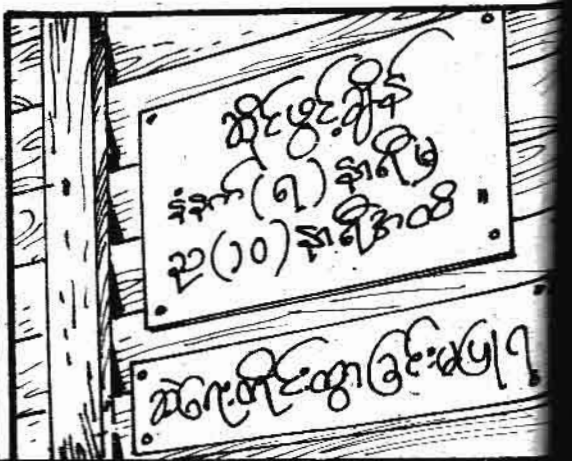 ဆိုင်ဖွင့်ချိန်
နံနက်(၇)နာရီမှ
ည(၁၀)နာရီအထိ။
ဆဲရေးတိုင်းထွာခြင်းမပြုရ